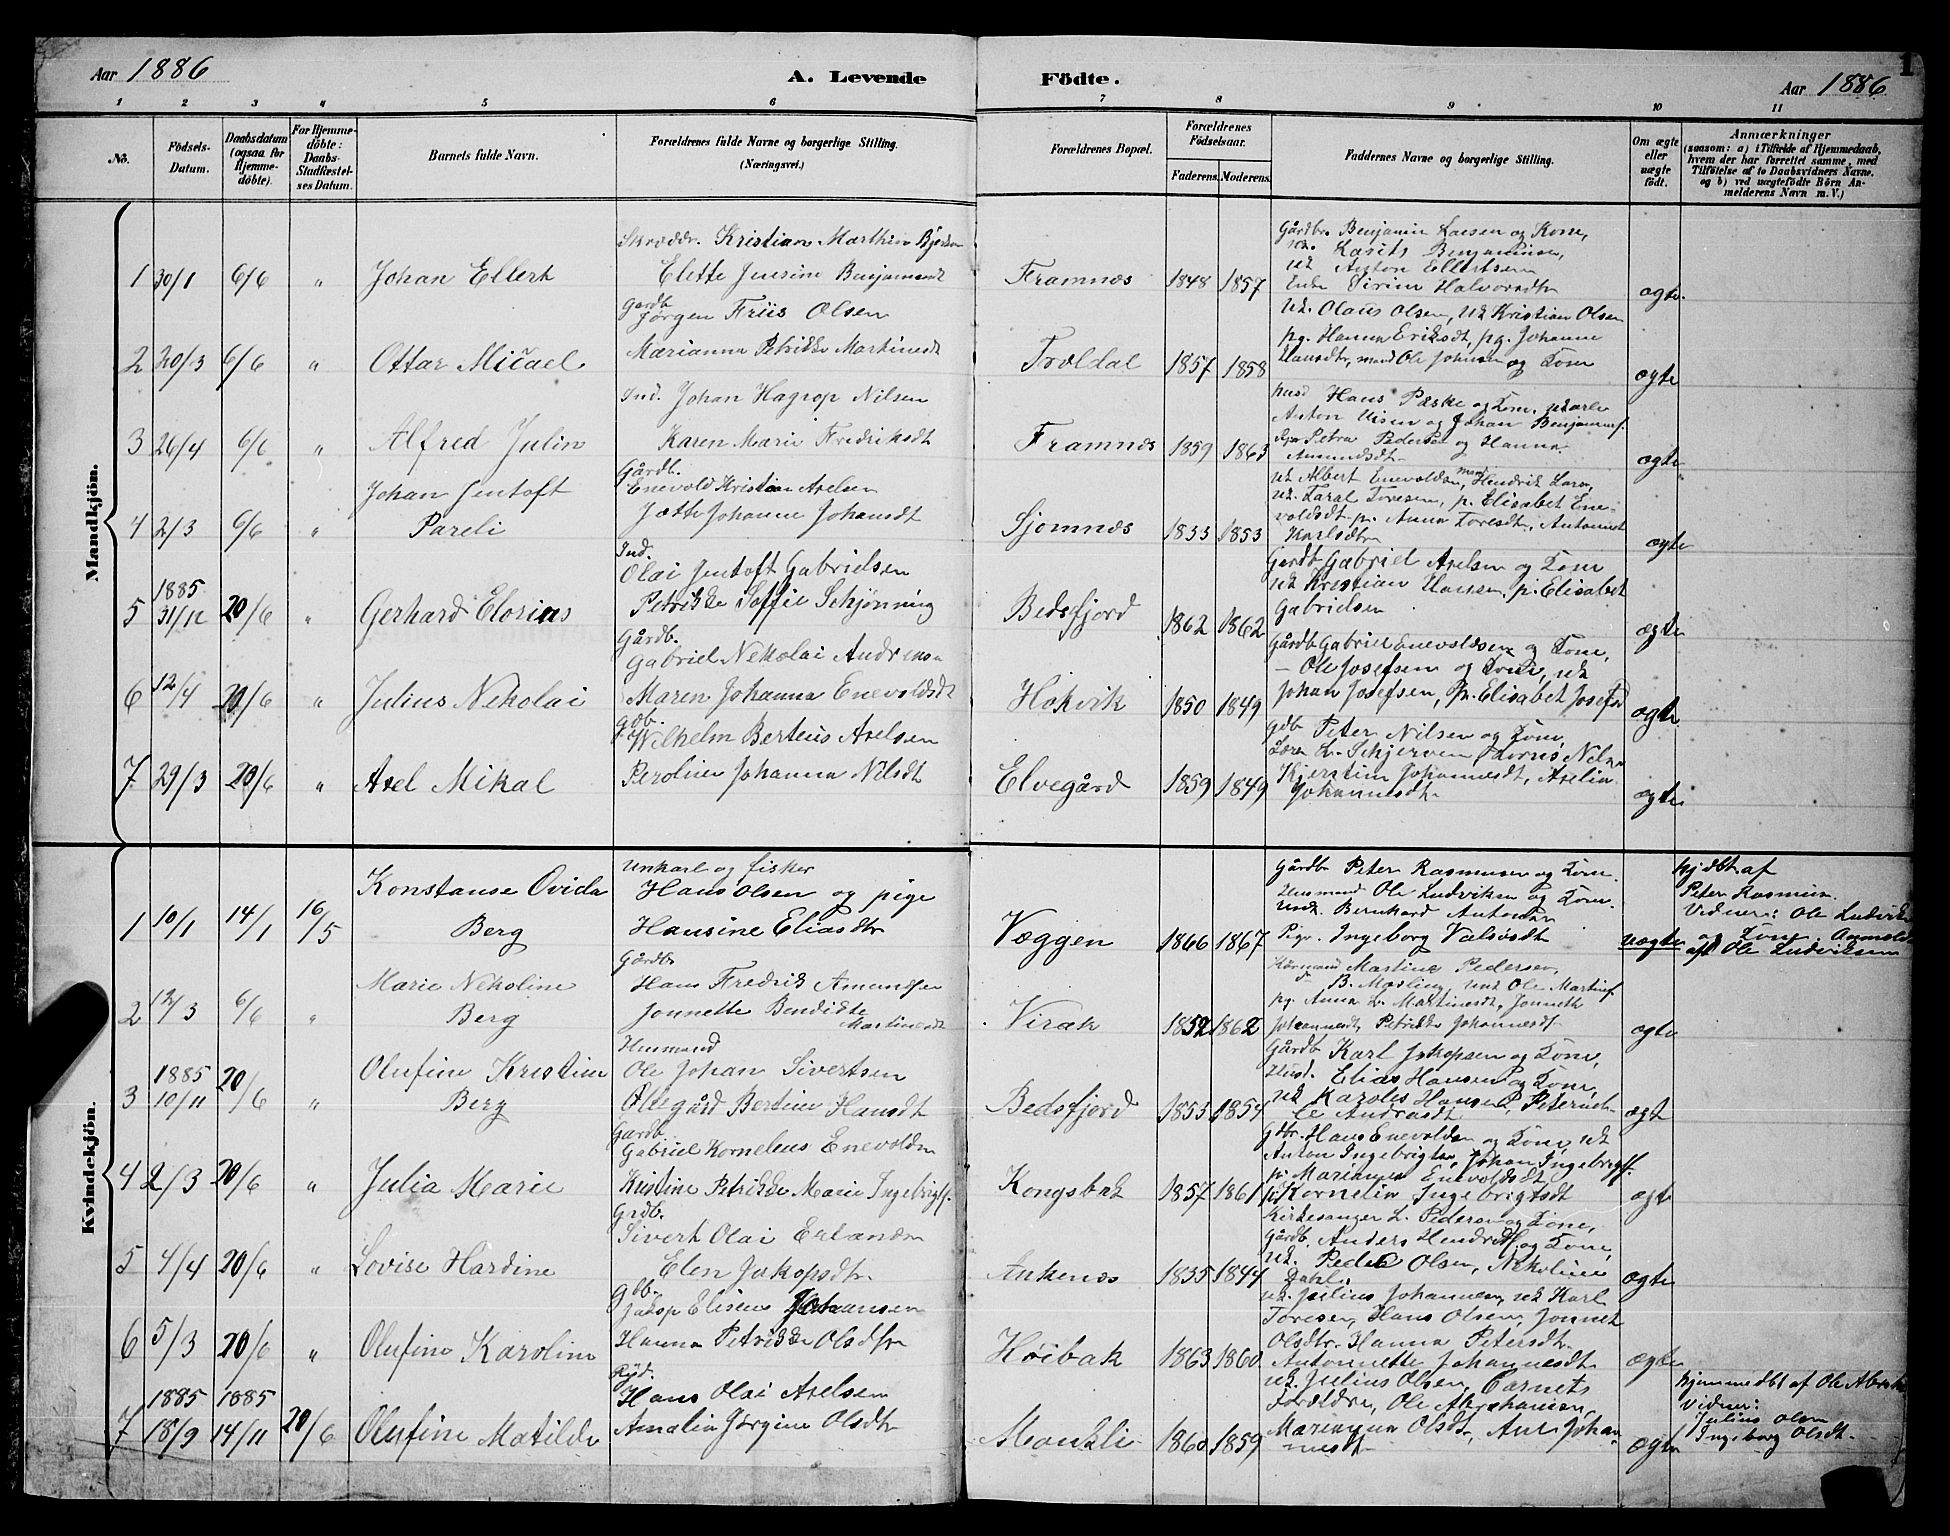 Aar 1886
A. Levende Födte.
Aar 1886
1
1 2 3 4 5 6 7 8 9 10 11
No.
Födsels-Datum.
Daabsdatum (ogsaa for Hjemme-döbte).
For Hjemme-döbte: Daabs-Stadfæstel-ses Datum.
Barnets fulde Navn.
Forældrenes fulde Navne og borgerlige Stilling. (Næringsvei.)
Forældrenes Bopæl.
Forældrenes Födselsaar.
Faderens. Moderens.
Faddernes Navne og borgerlige Stilling.
Om ægte eller uægte födt.
Anmærkninger
(saasom: a) i Tilfælde af Hjemmedaab,
hvem der har forrettet samme, med
Tilföielse af to Daabsvidners Navne.
og b) ved uægtefödte Börn An-
melderens Navn m. V.)
Mandkjön.
1 30/1 6/6 " Johan Ellert
Kristian Marthin
Elette Jensine
Framnæs 1848 1857
Gårdbr. Benjamin Larsen og Kone,
Benjaminsen,
uk Anton Ellertsen
Enke Sirine Halvorsdtr
ægte.
2 20/3 6/6 " Ottar Micael
Gardb
Jørgen Friis Olsen
Marianna Petrikke Martinusdt
Troldal 1857 1858
uk. Olaus Olsen, uk Kristian Olsen
pg. Hanna Eriksdt, pg. Johanne
Hansdtr, Ole Johnsen og Kone
ægte
3 26/4 6/6 " Alfred Julin
Ind. Johan Hagrop Nilsen
Karen Marie Fredriksdt
Framnæs 1859 1863
Hans Paske og Kone,
Anton og Johan
Petra Pedersen og Hanna
Amundsdt
ægte
4 2/3 6/6 " Johan Jentoft
Pareli
Gårdb.
Enevold Kristian Axelsen
Jætte Johanne Johansdt
Sjomnæs 1833 1853
uk Albert Enevoldsen, Hendrik
uk. Taral Toresen, p. Elisabet Ene-
voldsdt p. Anna Toresdt,
Karlsdtr
ægte
5 1885
31/12 20/6 " Gerhard Elorius
Ind.
Olai Jentoft Gabrielsen
Petrikke Soffie Schjønning
Bedsfjord 1862 1862
Gardb Gabriel Axelsen og Kone
uk Kristian Hansen, p. Elisabet
Gabrielsen
ægte
6 12/4 20/6 " Julius Nekolai
Gårdb.
Gabriel Nekolai
Maren Johanna Enevoldsdt
Håkvik 1850 1849
Gårdb Gabriel Enevoldsen og Kone,
— Ole Josefsen og Kone, uk
Johan Josefsen, p. Elisabet
ægte
7 29/3 20/6 " Axel Mikal
gdb.
Wilhelm Berteus Axelsen
Peroline Johanna Nilsdt
Elvegård 1859 1849
gdb Peter Nilsen og Kone,
Kjerstine Johannesdt, Axelia
Johannesdt
ægte
Kvindekjön.
1 10/1 14/1 16/5 Konstanse Ovida
Berg
Unkarl og fisker
Hans Olsen og pige
Hansine Eliasdtr
Væggen 1866 1867
Gårdb Peter Rasmusen og Kone
Husmand Ole Ludviksen og Kone
Bernhard
Pige. Ingeborg
uægte
hjdbt af
Peter Rasmusen
Vidner: Ole
og Kone
af Ole Ludviksen
2 12/3 6/6 " Marie Nekoline
Berg
Gårdb
Hans Fredrik Amundsen
Jonnette Bendikte
Martinusdt
Virak 1852 1862
Martine Pedersen,
pg. Anna L. Martinusdt, Jonnette
Johannesdt, Petrikke Johannesdt
ægte
3 1885
10/11 20/6 " Olufine Kristine
Berg
Husmand
Ole Johan Sivertsen
Olegård Bertine Hansdt
Bedsfjord 1853 1854
Gårdb Karl Jakopsen og Kone,
Husd. Elias Hansen og Kone,
uk Karoles Hansen,
ægt
4 2/3 20/6 " Julia Marie
Gardb
Gabriel Kornelius Enevoldsn
Kristine Petrikke Marie
Kongsbak 1857 1861
Gdbr. Hans Enevoldsen og Kone, uk
Anton Johan
p. Marianna Enevoldsdt
p. Kornelia Ingebrigtsdt
ægt
5 4/4 20/6 " Lovise Hardine
Grdb.
Sivert Olai Erlandsn
Elen Jakopsdtr.
Ankenæs 1835 1844
Kirkesanger L. Pedersen og Kone,
Gårdb. Anders og Kone,
uk. Peder Olsen, Nekoline
Dahl.
ægte
6 5/3 20/6 " Olufine Karoline
Gdb.
Jakop Elisæus Johansen
Hanna Petrikke Olsdtr
Høibak 1863 1860
uk. Julius uk Karl
Toresen, Hans Olsen, Jonnet
Olsdtr. Hanna Petersdt
Antonnette Johannesdt
ægte
7 1885
18/9 1885
14/11 20/6 Olufine Matilde
Ryd.
Hans Olai Axelsen
Amalia Jørgine Olsdtr
Mankli 1860 1859
uk. Julius Olsen, Barnets
Foreldre, Ole Abrahamsen,
Marianna Olsdtr, Ane
ægte
hjemmedbt af Ole
Vidner:
Julius Olsen
Ingeborg Olsdt.